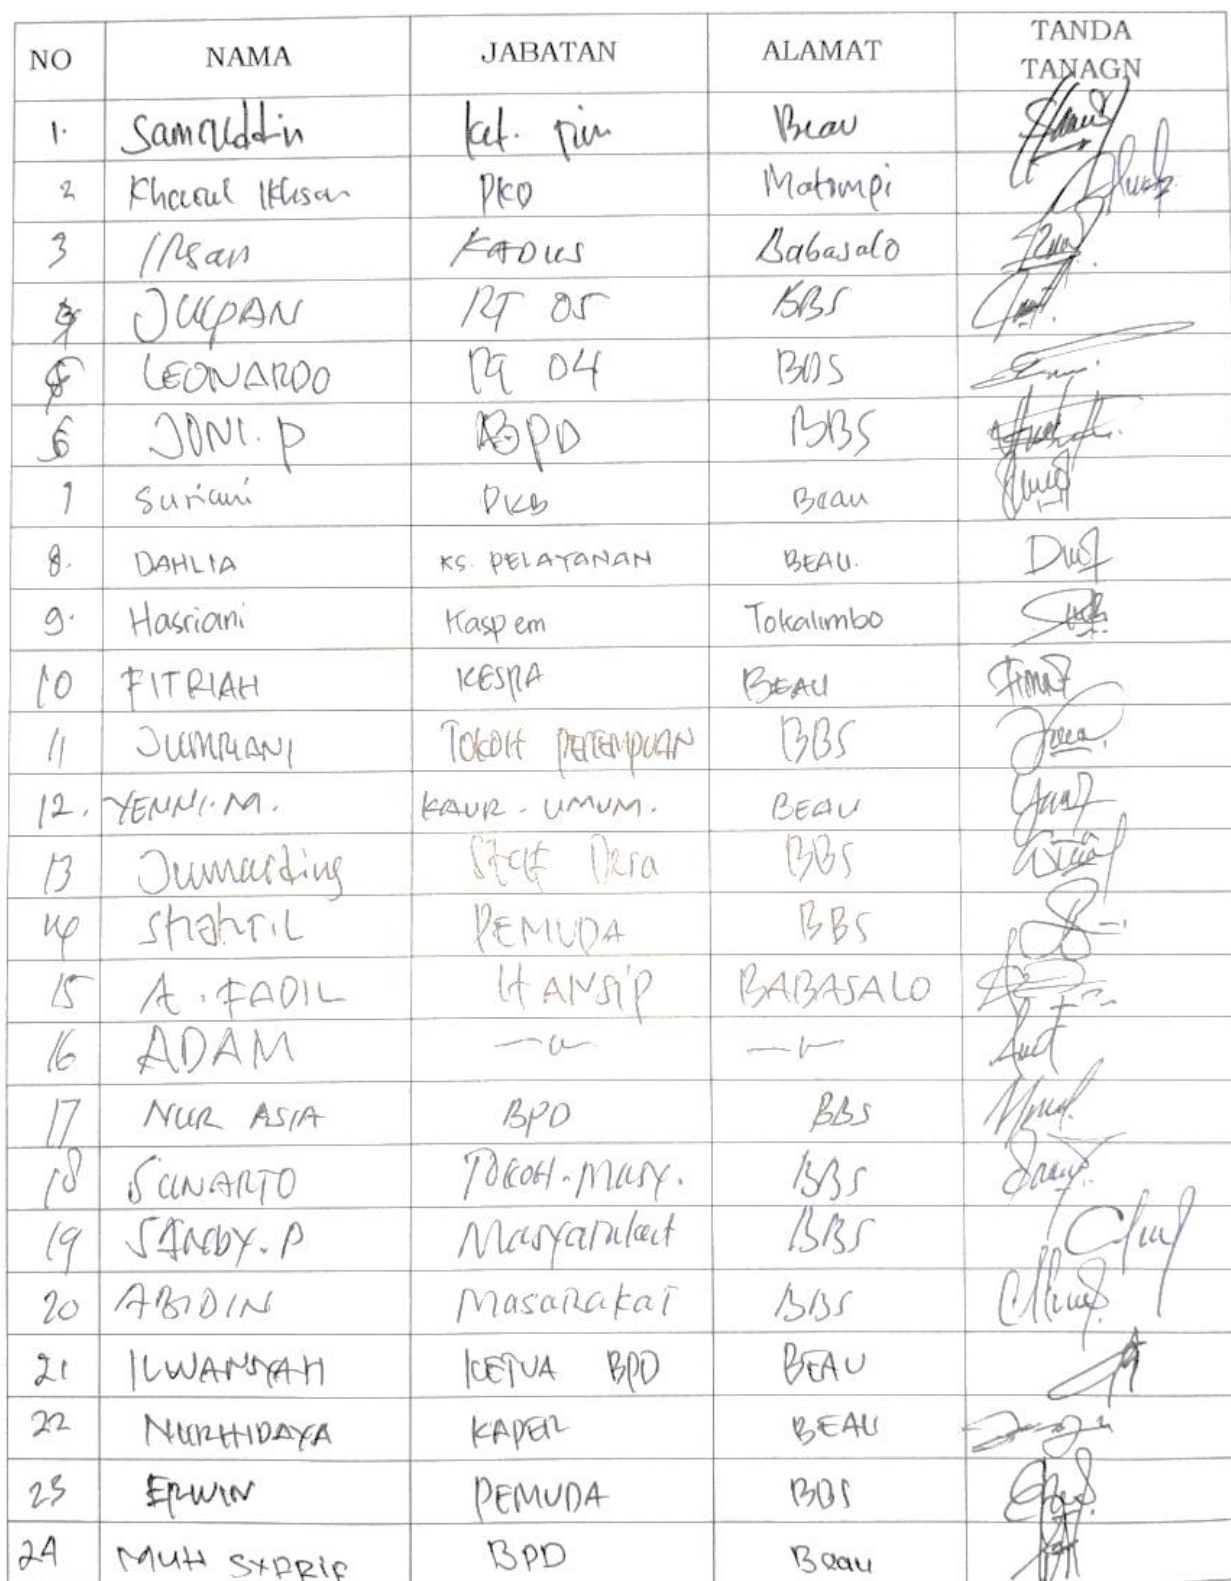 NO NAMA JABATAN ALAMAT TANDA TANAGN
1. Samruddin ket. pim Beau
2 Khaerul Ikhsan PKD Matompi
3 IRsan KADUS Babasalo
4 JUPAN RT 05 BBS
5 LEONARDO RT 04 BBS
6 JONI. P BPD BBS
7 Suriani PKB Beau
8. DAHLIA KS. PELAYANAN BEAU.
9. Hasriani Kaspem Tokalimbo
10 FITRIAH KESRA BEAU
11 JUMRIANI TOKOH PEREMPUAN BBS
12. YENNI. M. KAUR. UMUM. BEAU
13 Jumarding Staf Desa BBS
14 SYAHRIL PEMUDA BBS
15 A. FADIL HANSIP BABASALO
16 ADAM
17 NUR ASIA BPD BBS
18 SUNARTO TOKOH. MASY. BBS
19 SANDY. P Masyarakat BBS
20 ABIDIN MasaRakaT BBS
21 ILWANSYAH KETUA BPD BEAU
22 NURHIDAYA KADER BEAU
23 ERWIN PEMUDA BBS
24 MUH BPD Beau